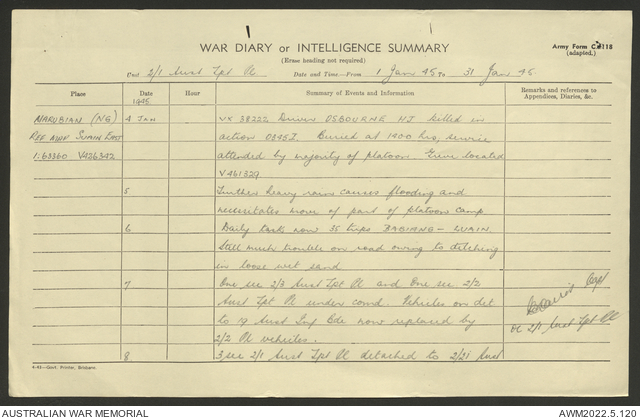 WAR DIARY or INTELLIGENCE SUMMARY
(Erase heading not required)
Army Form C.2118
(adapted.)
Unit 2/1 Aust Tpt Pl Date and Time—From 1 Jan 45 To 31 Jan 45
Place Date Hour Summary of Events and Information Remarks and references to Appendices, Diaries, &c.
1945
NARUBIAN (NG) 4 JAN VX 38222 Driver OSBOURNE HJ killed in
REF MAP SUAIN EAST action Buried at 1900 hrs, service
1:63360 V426342 attended by majority of platoon. Grave located
V461329
5 Further heavy rain causes flooding and
necessitates move of part of platoon camp
6 Daily task now 35 trips BABIANG – LUAIN.
Still much trouble on road owing to ditching
in loose wet sand
7 One sec 2/3 Aust Tpt Pl and One sec 2/2
Aust Tpt Pl under comd. Vehicles on det
to 19 Aust Inf Bde now replaced by
2/2 Pl vehicles.
Capt
OC 2/1 Aust Tpt Pl
8 3 sec 2/1 Aust Tpt Pl detached to 2/2i Aust
4-43—Govt. Printer, Brisbane.
AUSTRALIAN WAR MEMORIAL
AWM2022.5.120